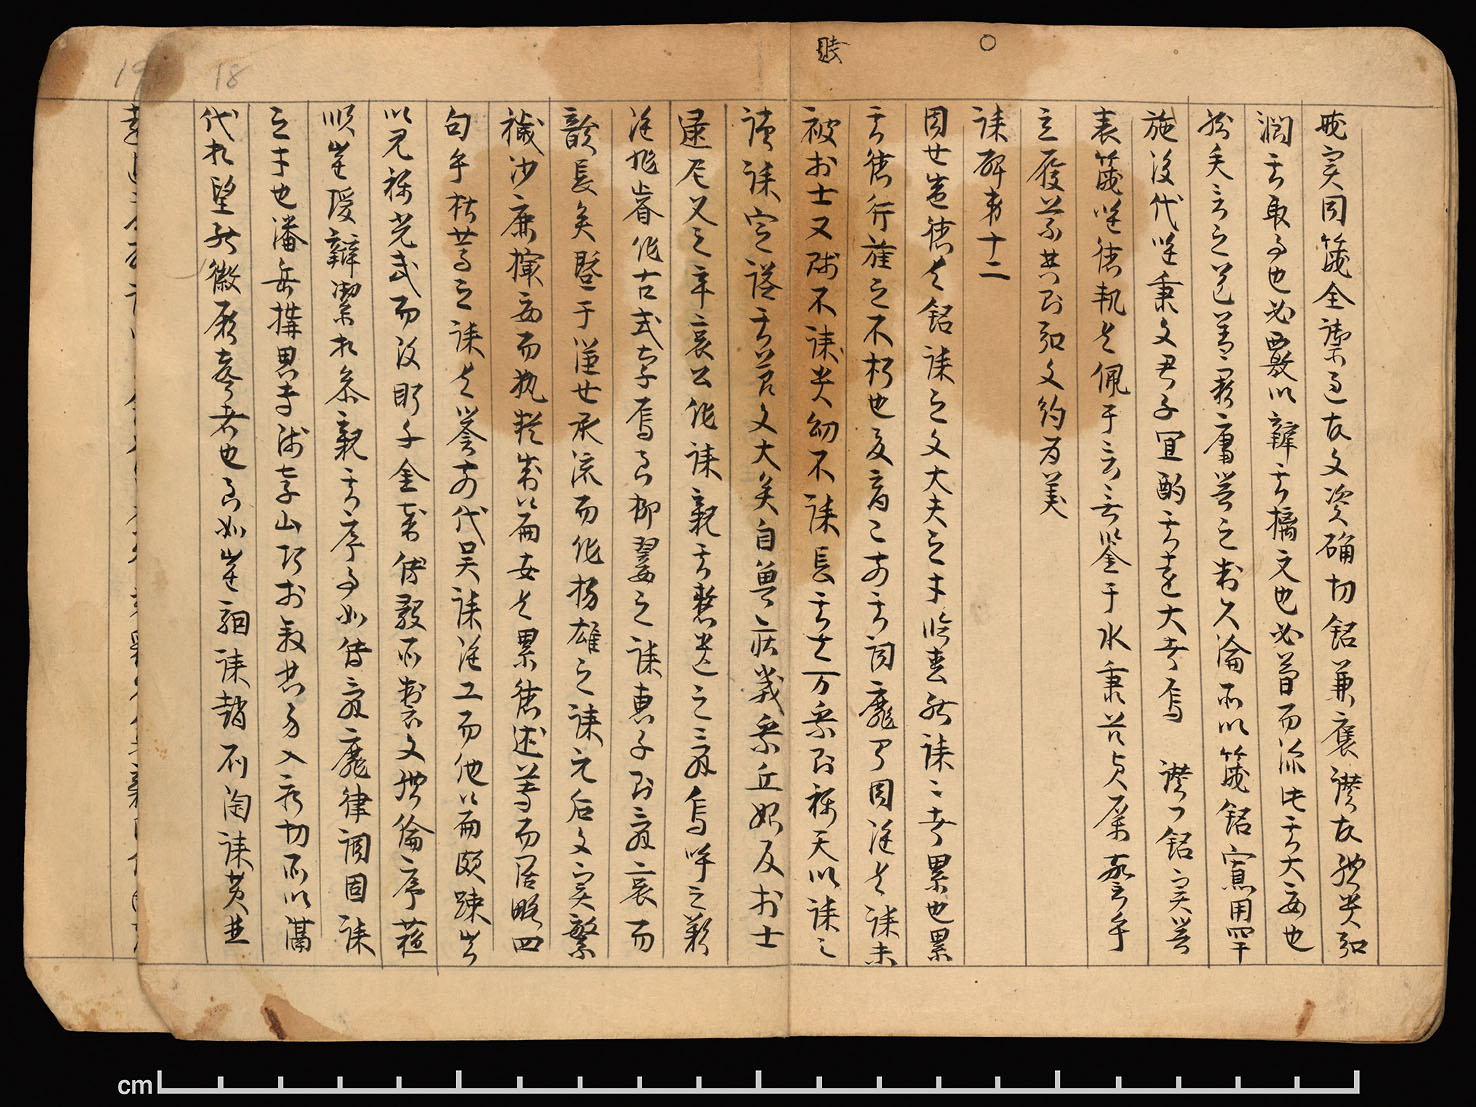 戒實同箴全禦過故文資确切銘兼襃讚故體貴弘
潤其取事也必覈以辯其摛文也必簡而深此其大要也
然矢言之道蓋闕庸器之制久淪所以箴銘寡用罕
施後代唯秉文君子宜酌其遠大者焉 讚曰銘實器
表箴唯德軌有佩于言无鑒于水秉茲貞厲警乎
立履義典則弘文約為美
誄碑第十二
周世盛德有銘誄之文大夫之才臨喪能誄誄者累也累
其德行旌之不朽也夏商已前其詞靡聞周雖有誄未
被於士又賤不誄貴幼不誄長其在万乘則稱天以誄之
讀誄定謚其節文大矣自魯莊戰乘丘始及於士
逮尼父之卒哀公作誄觀其憖遺之辭烏呼之歎
雖非睿作古式存焉至柳妻之誄惠子則辭哀而
韻長矣暨于漢世承流而作揚雄之誄元后文實繁
穢沙鹿撮要而執疑成篇安有累德述尊而闊略四
句乎杜篤之誄有譽前代吳誄雖工而他篇頗踈豈
以見稱光武而改盻千金哉傅毅所制文體倫序蘇
順崔瑗辯潔相參觀其序事如傳辭靡律調固誄
之才也潘岳構思專師孝山巧於叙悲易入新切所以隔
代相望能徽厥聲者也至如崔駰誄趙劉陶誄黃並
18